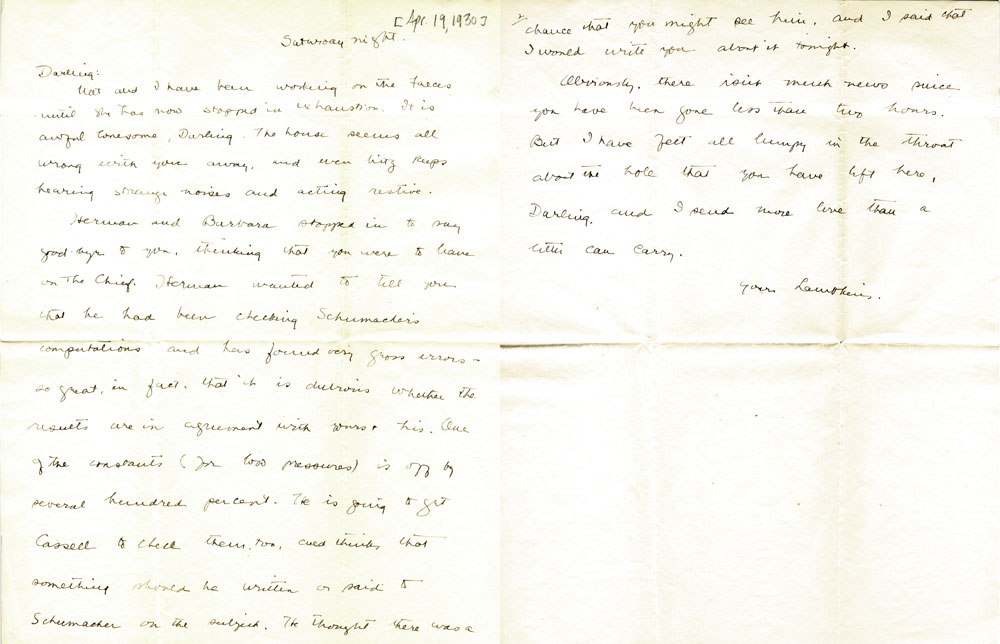 [Apr. 19, 1930]
Saturday night.
Darling:
Nat and I have been working on the faeces
until she has now stopped in exhaustion. It is
awful lonesome, Darling. The house seems all
wrong with you away, and even Fritz keeps
hearing strange noises and acting restive.
Herman and Barbara stopped in to say
good-bye to you, thinking that you were to leave
on the Chief. Herman wanted to tell you
that he had been checking Schumacher's
computations and has found very gross errors -
so great, in fact, that it is dubious whether the
results are in agreement with yours + his. One
of the constants (for low pressures) is off by
several hundred percent. He is going to get
Cassell to check them, too, and thinks that
something should be written or said to
Schumacher on the subject. He thought there was a
2/
chance that you might see him, and I said that
I would write you about it tonight.
Obviously, there isn't much news since
you have been gone less than two hours.
But I have felt all lumpy in the throat
about the hole that you have left here,
Darling, and I send more love than a
letter can carry.
Yours Lambkin.